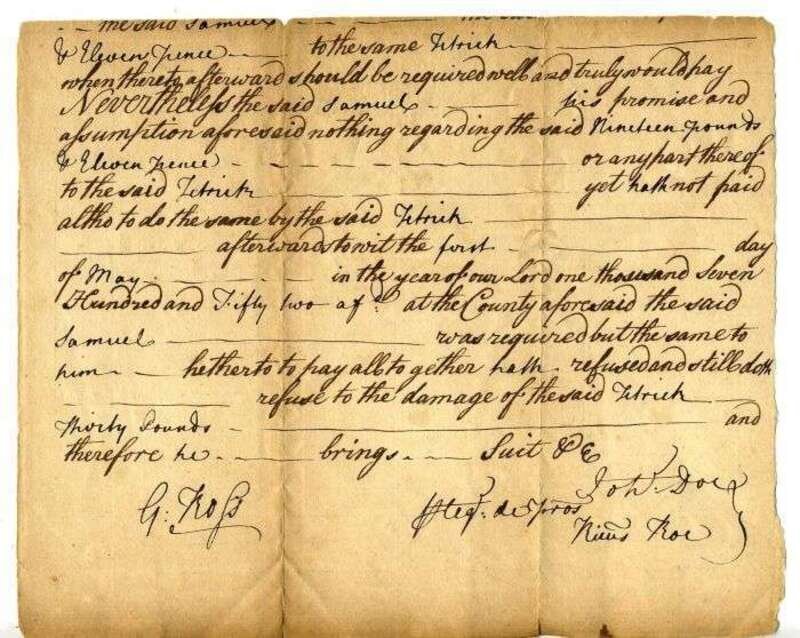 me said Samuel
& Eleven Pence to the same Titrick
when thereto afterward should be required well and truly would pay
Nevertheless the said Samuel his promise and
assumption aforesaid nothing regarding the said Nineteen Pounds
& Eleven Pence or any part thereof
to the said Titrick yet hath not paid
altho to do the same by the said Titrick
afterwards to wit the first day
of May in the year of our Lord one thousand Seven
Hundred and Fifty two afd at the County aforesaid the said
Samuel was required but the same to
him hetherto to pay all to gether hath refused and still doth
refuse to the damage of the said Titrick
Thirty Pounds and
therefore he brings Suit &c
G: Ross Pleg. de Pros Joh. Doe
Ricus Roe